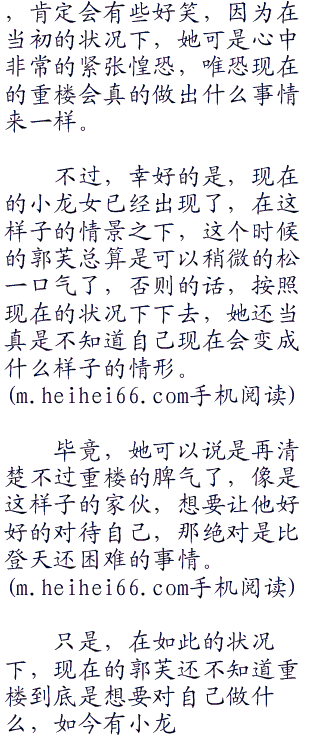 ，肯定会有些好笑，因为在
当初的状况下，她可是心中
非常的紧张惶恐，唯恐现在
的重楼会真的做出什么事情
来一样。
不过，幸好的是，现在
的小龙女已经出现了，在这
样子的情景之下，这个时候
的郭芙总算是可以稍微的松
一口气了，否则的话，按照
现在的状况下下去，她还当
真是不知道自己现在会变成
什么样子的情形。
(m.heihei66.com手机阅读)
毕竟，她可以说是再清
楚不过重楼的脾气了，像是
这样子的家伙，想要让他好
好的对待自己，那绝对是比
登天还困难的事情。
(m.heihei66.com手机阅读)
只是，在如此的状况
下，现在的郭芙还不知道重
楼到底是想要对自己做什
么，如今有小龙